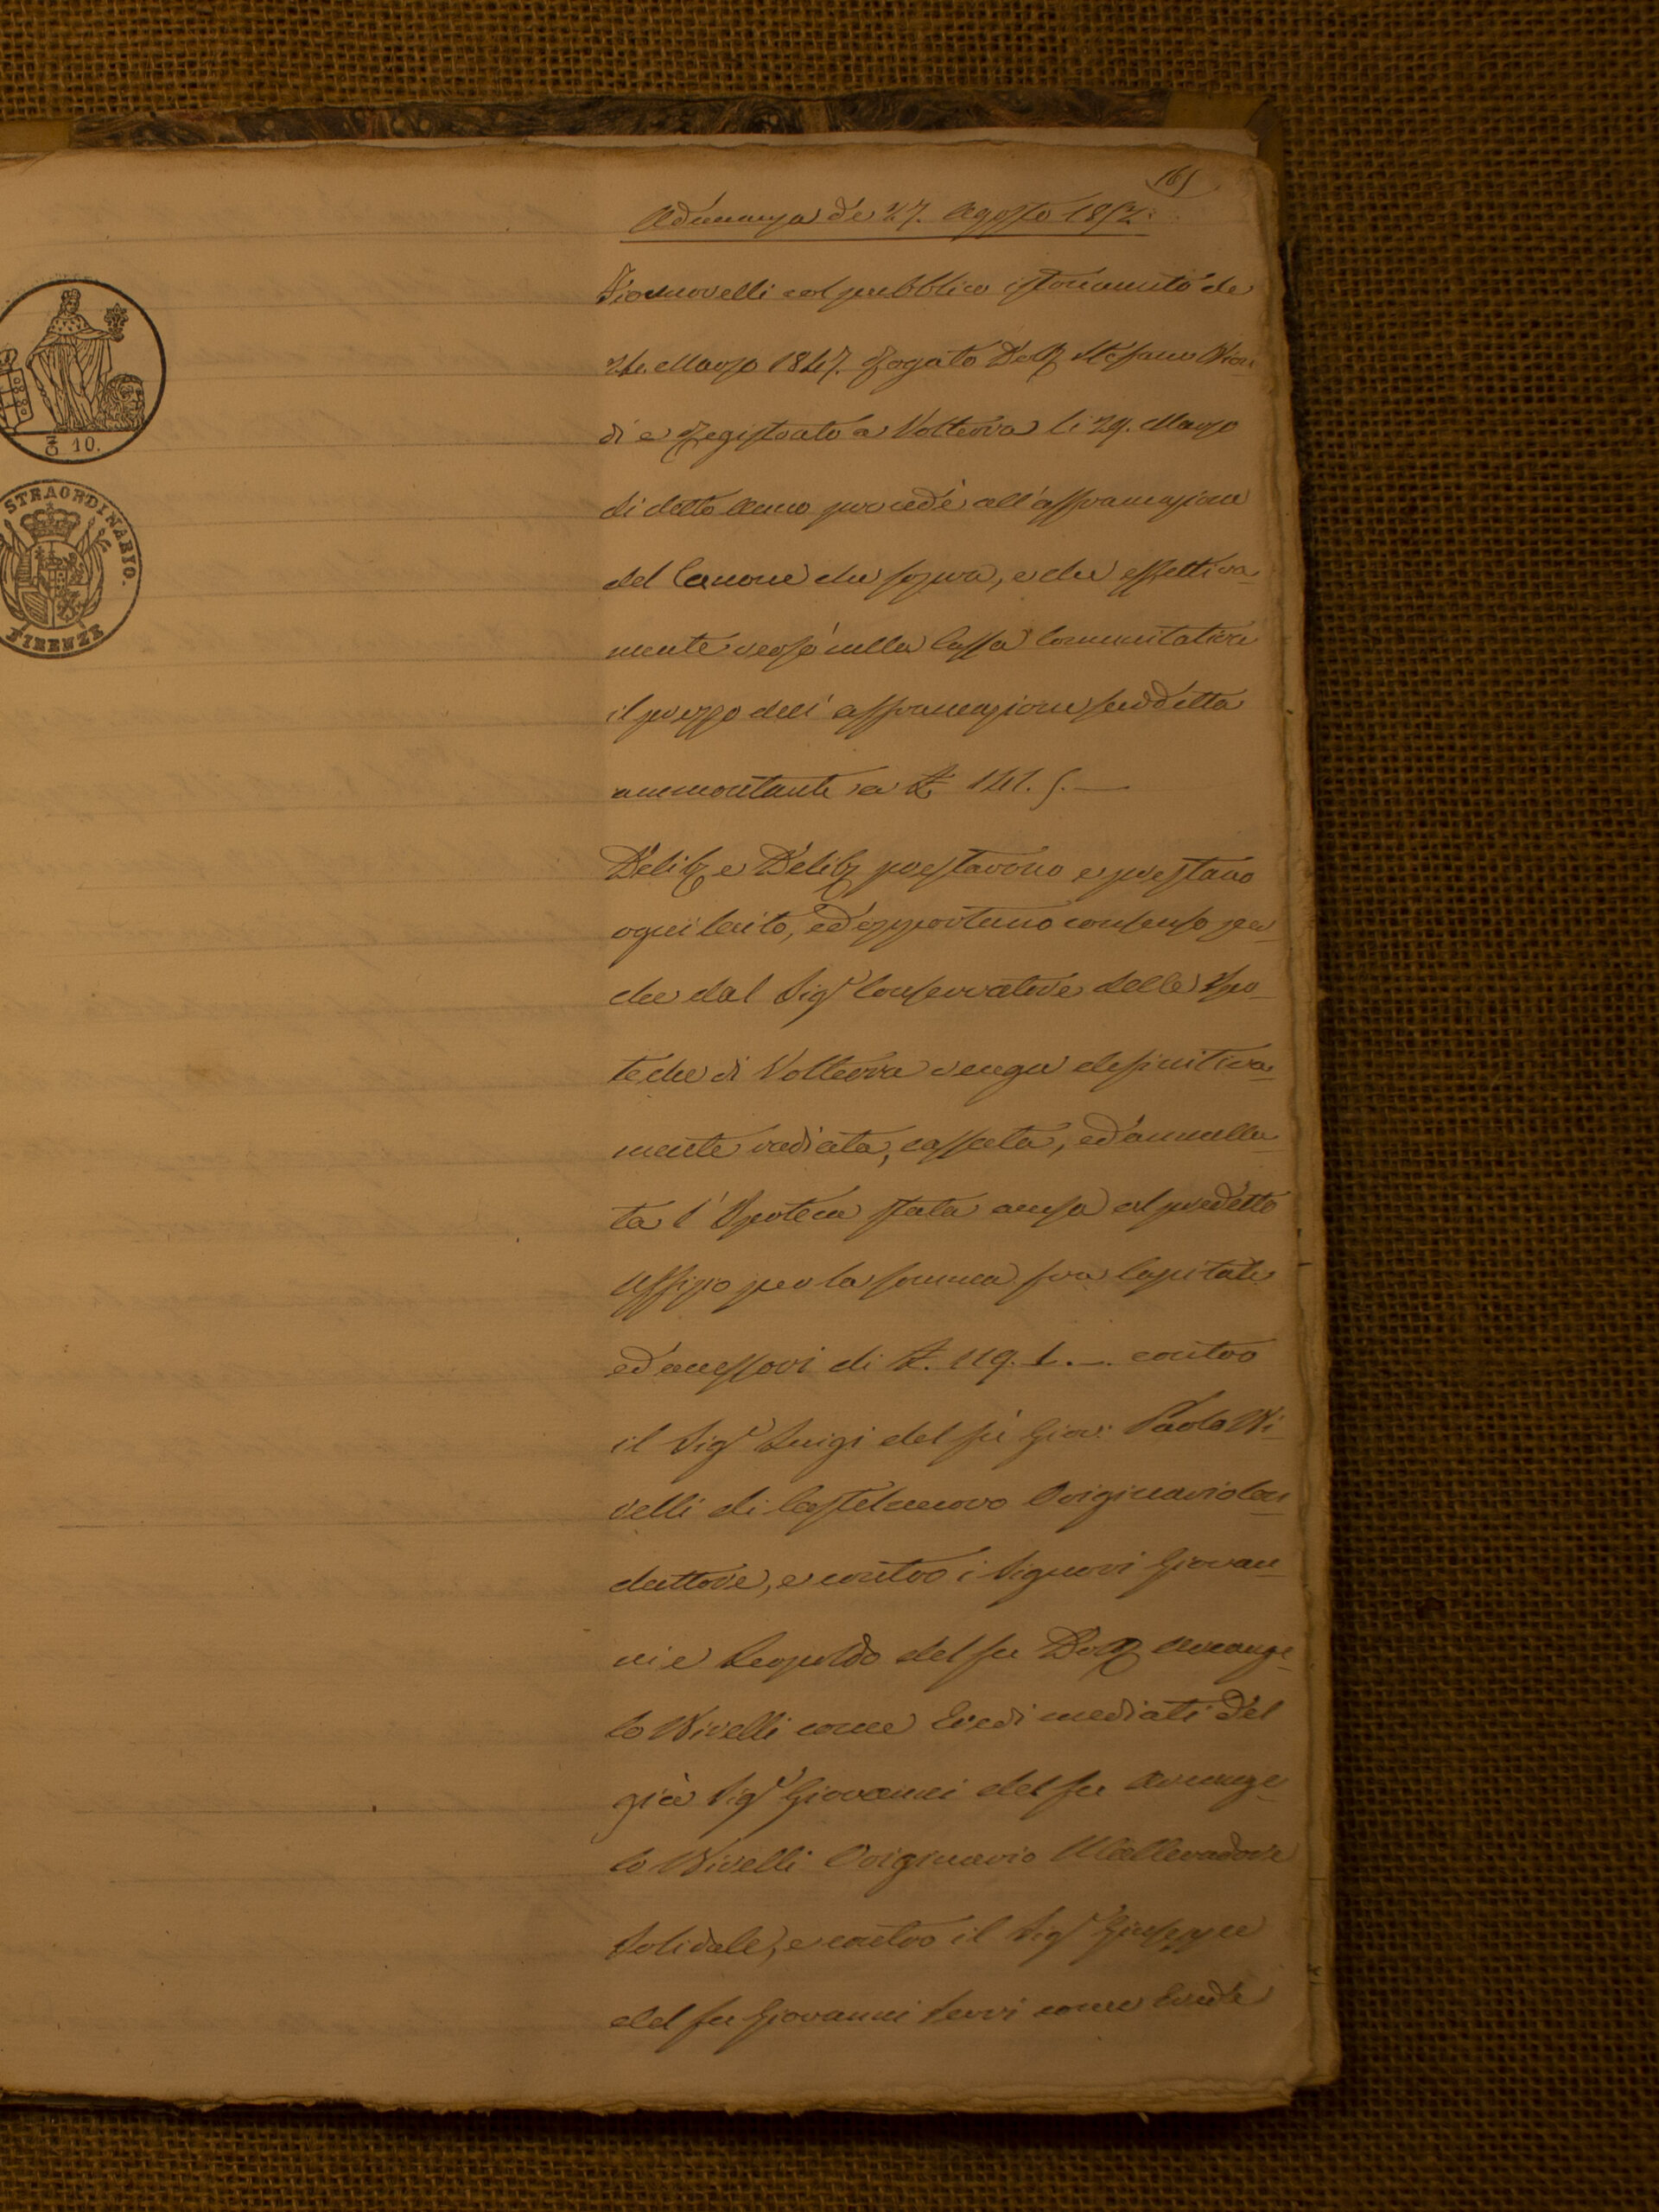 165
Adunanza de 27. Agosto 1852.
Fiornovelli col pubblico istrumento de
24. Marzo 1847. Rogato Dott Stefano Bion
di e Registrato a Volterra li 29. Marzo
di detto Anno procedè all'affrancazione
del Canone che sopra, e che effettiva
mente versò nella Cassa Comunitativa
il prezzo dell'affrancazione suddetta
ammontante a £ 141. 5.—
Delib e Delib prestarono e prestano
ogni lecito, ed opportuno consenso per
che dal Sigr Conservatore delle Ipo
teche di Volterra venga definitiva
mente radiata, cassata, ed annulla
ta l'Ipoteca stata accesa al predetto
Uffizio per la somma fra Capitale
ed accessori di £. 119. 1. —. contro
il Sigr Luigi del fù Giov: Paolo Bi
velli di Castelnuovo Originario Con
duttore, e contro i Signori Giovan
ni e Leopoldo del fu Dott Arcange
lo Bivelli come Eredi mediati del
già Sigr Giovanni del fu Arcange
lo Bivelli Originario Mallevadore
Solidale, e contro il Sigr Giuseppe
del fu Giovanni Serri come Erede
STRAORDINARIO.
FIRENZE
10.